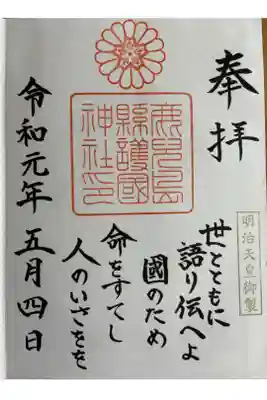 奉拝
明治天皇御製
世とともに
語り伝へよ
國のため
命をすてし
人のいさをを
鹿児島
縣護國
神社印
令和元年 五月四日